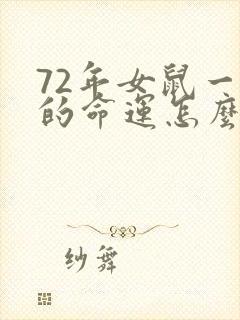 72年女鼠一
的命運怎麼
纱舞